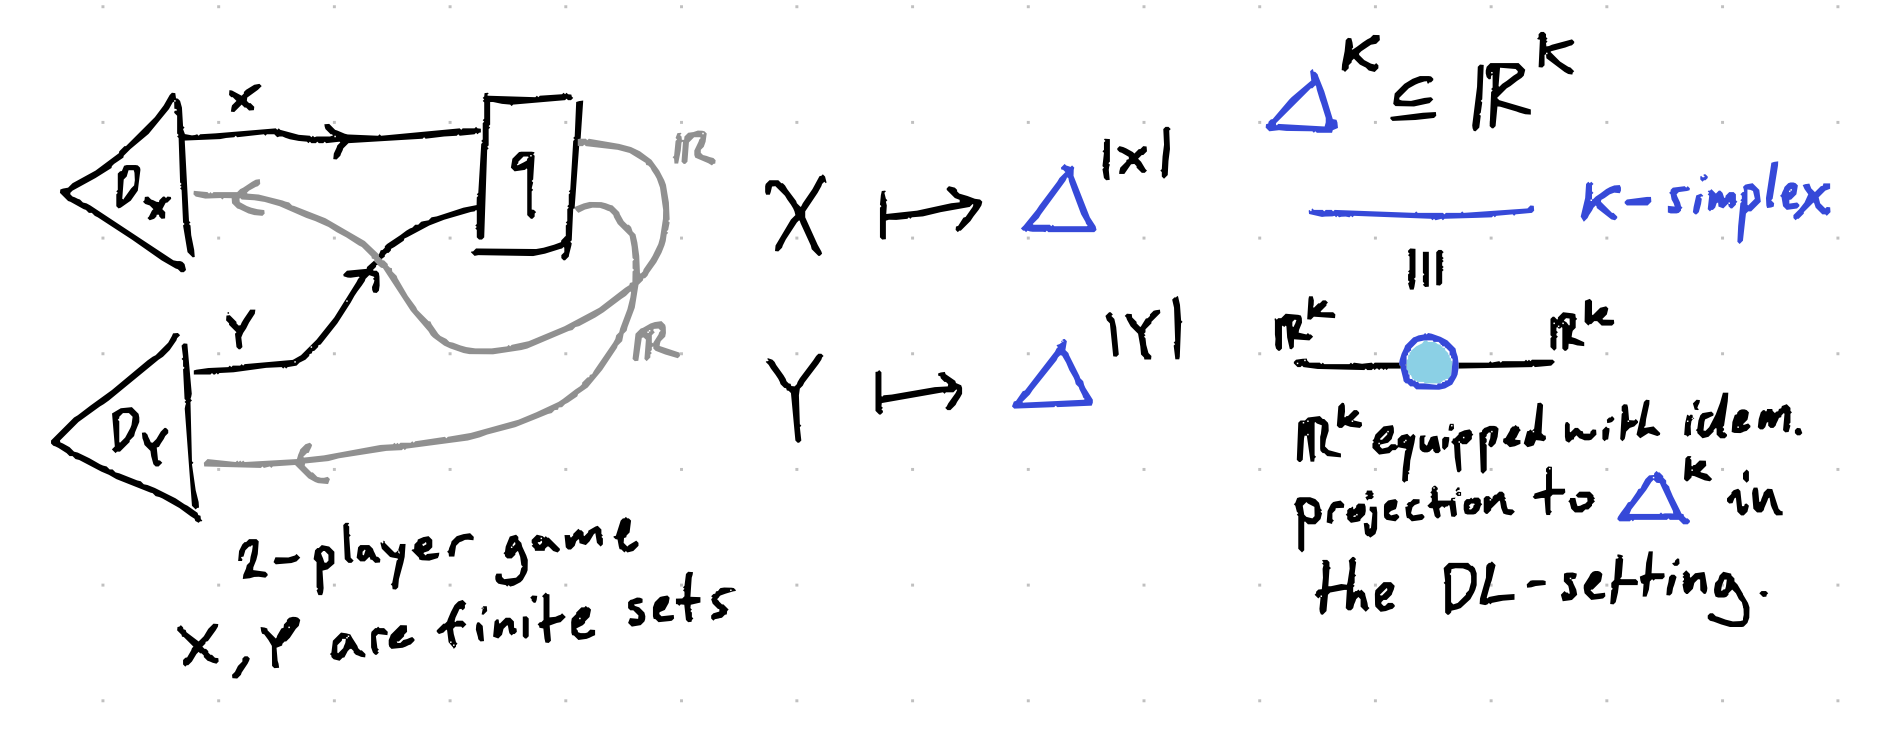 X
D_X
q
ℝ
Y
ℝ
D_Y
2-player game
X, Y are finite sets
X ↦ Δ^|X|
Y ↦ Δ^|Y|
Δ^K ⊆ ℝ^K
K-simplex
≡
ℝ^k ℝ^k
ℝ^k equipped with idem.
projection to Δ^k in
the DL-setting.